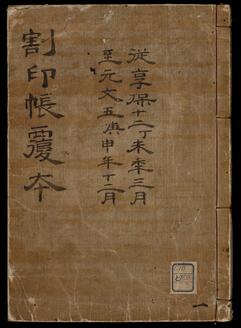 從享保十二丁未年三月
至元文五庚申年十二月
割印帳覆本
一